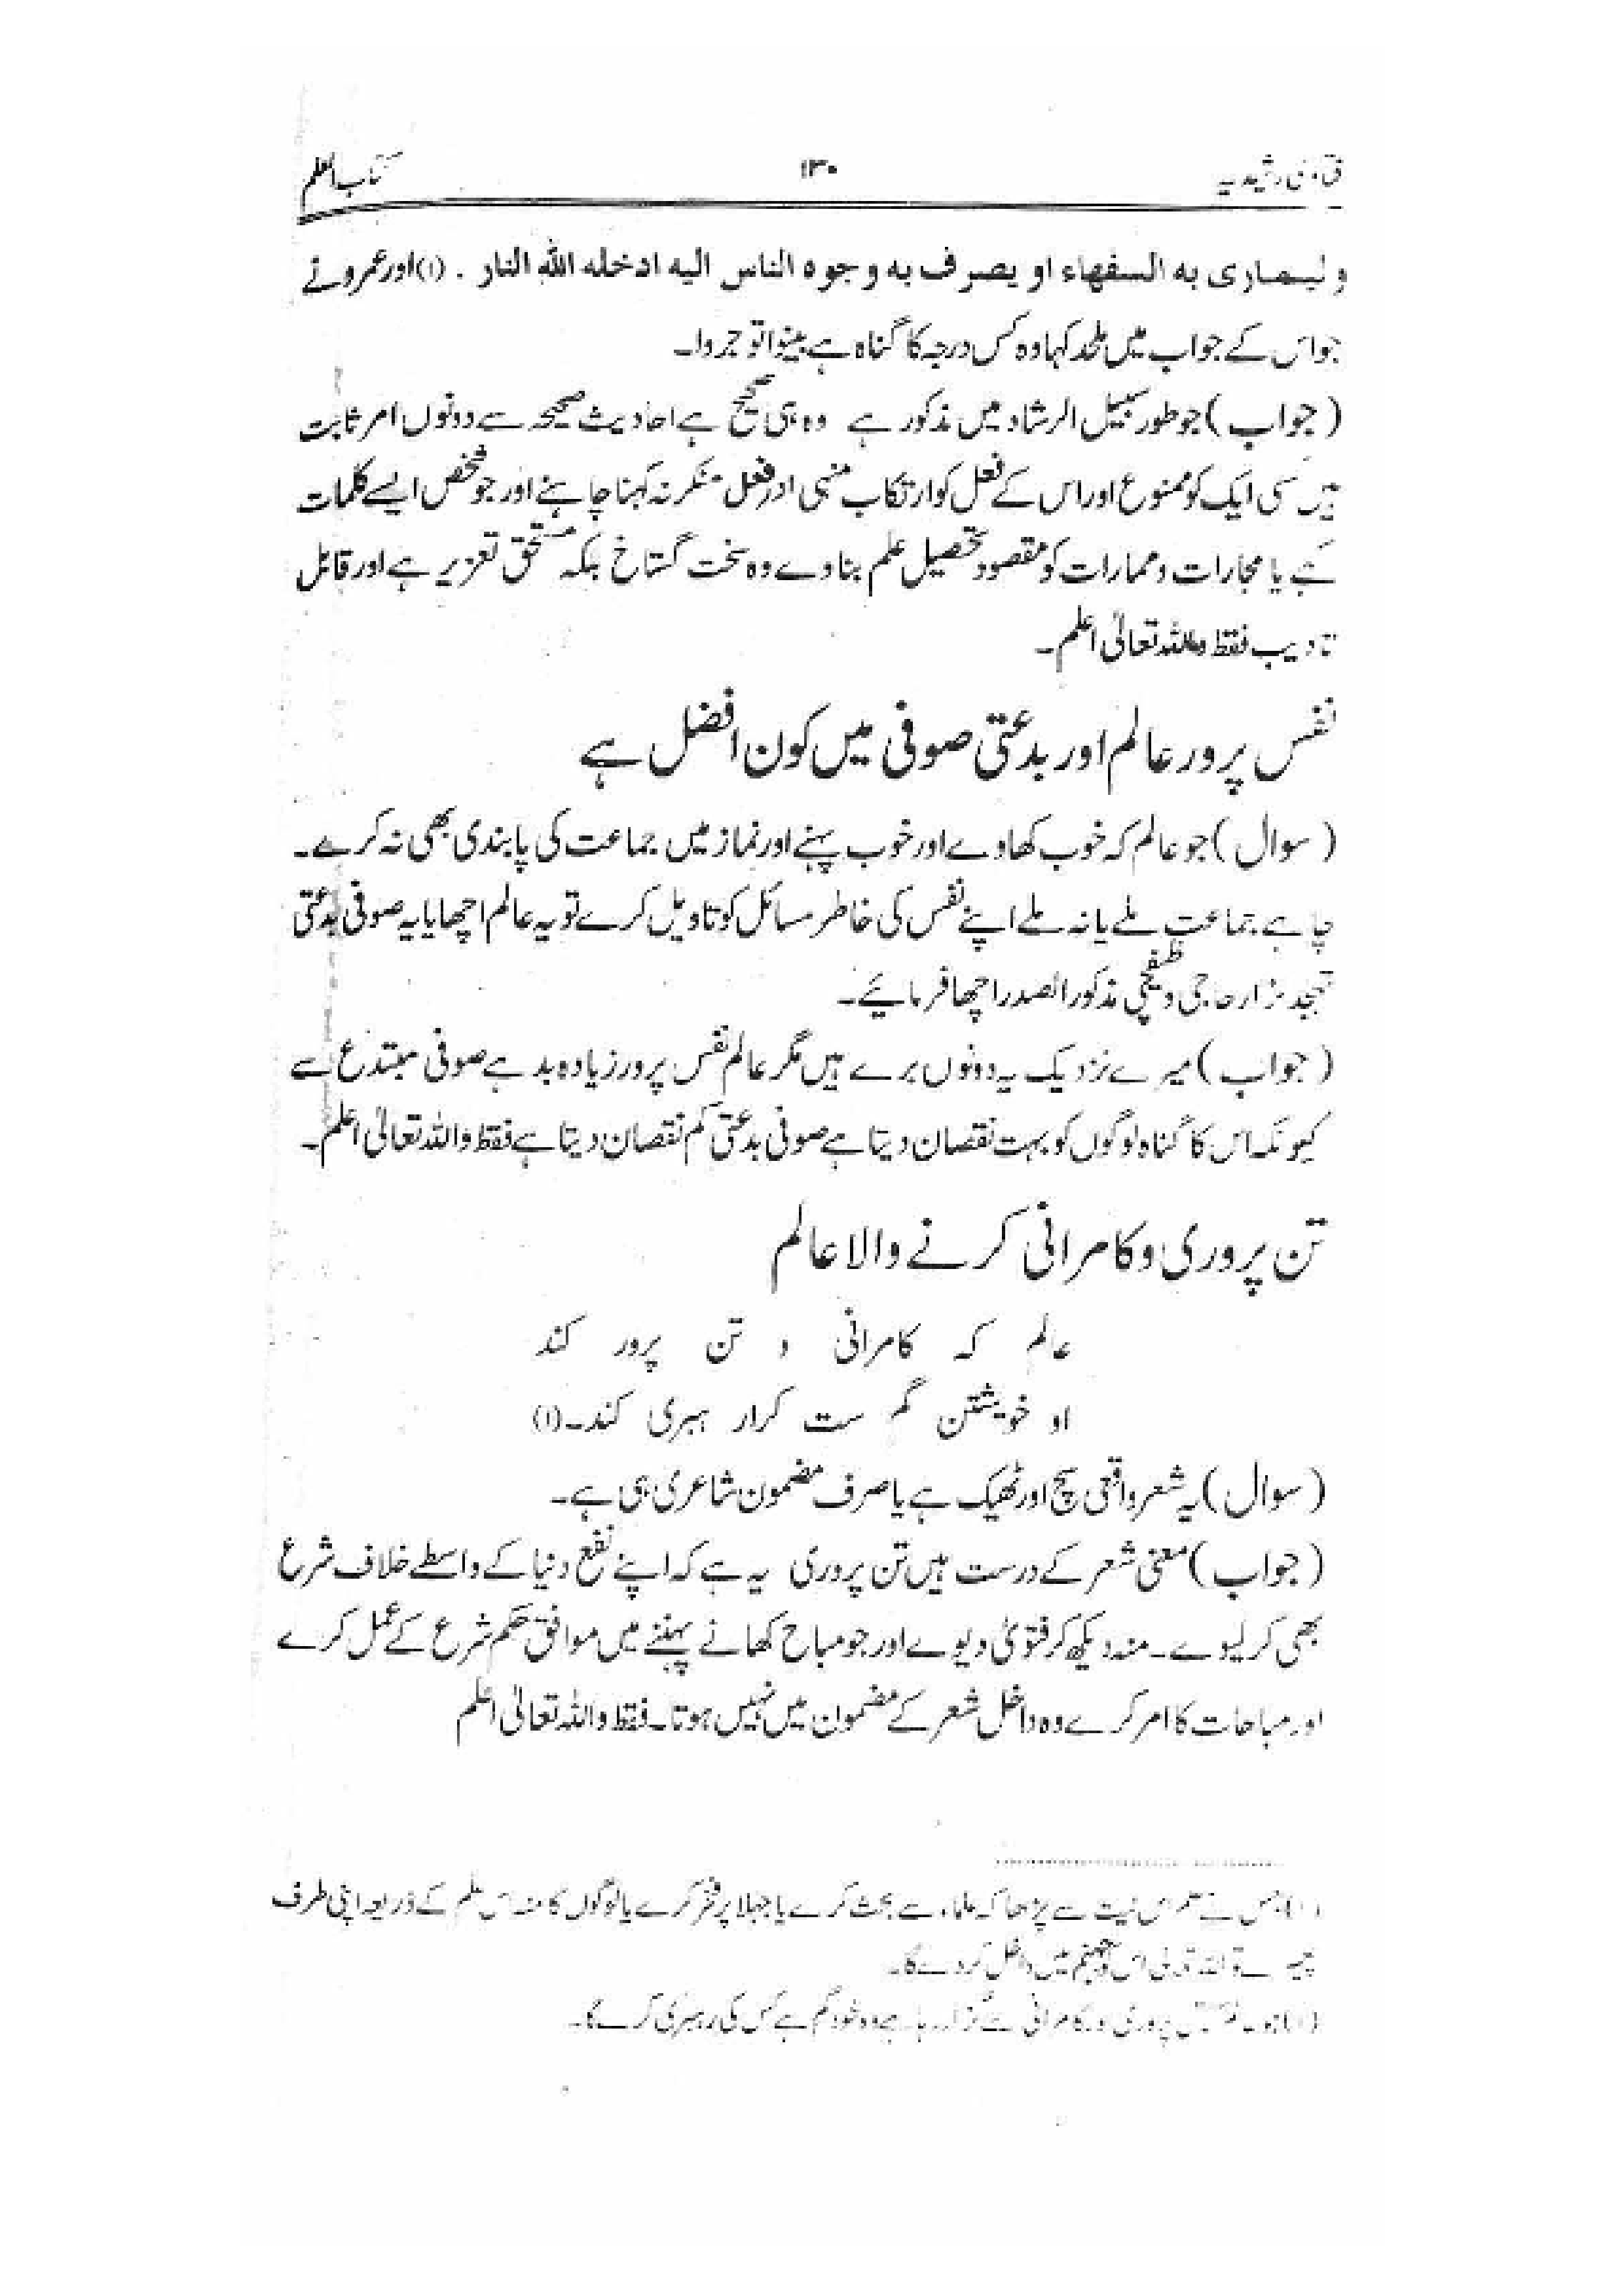 فتاویٰ رشیدیہ ۱۳۰ کتاب العلم
ولیماری به السفهاء او یصرف به وجوه الناس الیه ادخله الله النار . (۱) اور عمرو نے
جو اس کے جواب میں ملحد کہا وہ کس درجہ کا گناہ ہے بینوا تو جروا۔
(جواب) جو طور سبیل الرشاد میں مذکور ہے وہ ہی صحیح ہے احادیث صحیحہ سے دونوں امر ثابت
ہیں کسی ایک کو ممنوع اور اس کے فعل کو ارتکاب منہی اور فعل منکر نہ کہنا چاہئے اور جو شخص ایسے کلمات
کہے یا مجارات و ممارات کو مقصود تحصیل علم بناوے وہ سخت گستاخ بلکہ مستحق تعزیر ہے اور قابل
تادیب فقط واللہ تعالیٰ اعلم۔
نفس پرور عالم اور بدعتی صوفی میں کون افضل ہے
(سوال) جو عالم کہ خوب کھاوے اور خوب پہنے اور نماز میں جماعت کی پابندی بھی نہ کرے۔
چاہے جماعت ملے یا نہ ملے اپنے نفس کی خاطر مسائل کو تاویل کرے تو یہ عالم اچھا یا یہ صوفی بدعتی
تہجد گزار حاجی وظیفچی مذکور الصدر اچھا فرمائیے۔
(جواب) میرے نزدیک یہ دونوں برے ہیں مگر عالم نفس پرور زیادہ بد ہے صوفی مبتدع سے
کیونکہ اس کا گناہ لوگوں کو بہت نقصان دیتا ہے صوفی بدعتی کم نقصان دیتا ہے فقط واللہ تعالیٰ اعلم۔
تن پروری و کامرانی کرنے والا عالم
عالم کہ کامرانی و تن پرور کند
او خویشتن گم ست کرار ہبری کند۔(۱)
(سوال) یہ شعر واقعی سچ اور ٹھیک ہے یا صرف مضمون شاعری ہی ہے۔
(جواب) معنی شعر کے درست ہیں تن پروری یہ ہے کہ اپنے نفع دنیا کے واسطے خلاف شرع
بھی کر لیوے۔ منہ دیکھ کر فتویٰ دیوے اور جو مباح کھانے پہننے میں موافق حکم شرع کے عمل کرے
اور مباحات کا امر کرے وہ داخل شعر کے مضمون میں نہیں ہوتا۔ فقط واللہ تعالیٰ اعلم
(۱) جس نے علم اس نیت سے پڑھا کہ علماء سے بحث کرے یا جہلا پر فخر کرے یا لوگوں کا منہ اس علم کے ذریعہ اپنی طرف
پھیرے تو اللہ تعالیٰ اس کو جہنم میں داخل کر دے گا۔
پروری اور کامرانی سے گزار رہا ہے وہ خود گم ہے کس کی رہبری کرے گا۔